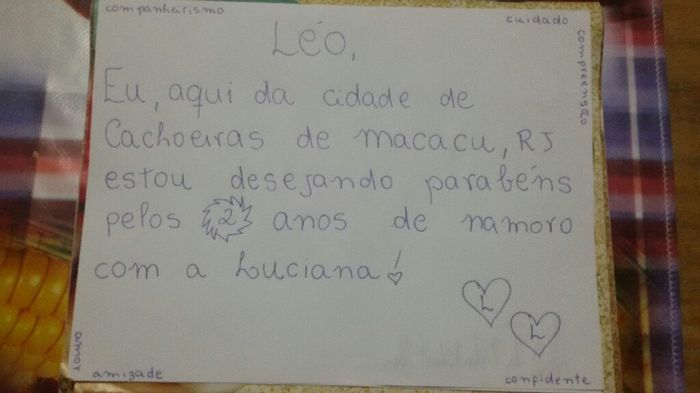 companheirismo
cuidado
compreensão
LÉO,
Eu, aqui da cidade de
Cachoeiras de macacu, RJ
estou desejando parabéns
pelos 2 anos de namoro
com a Luciana!
L
L
amor
amizade
confidente